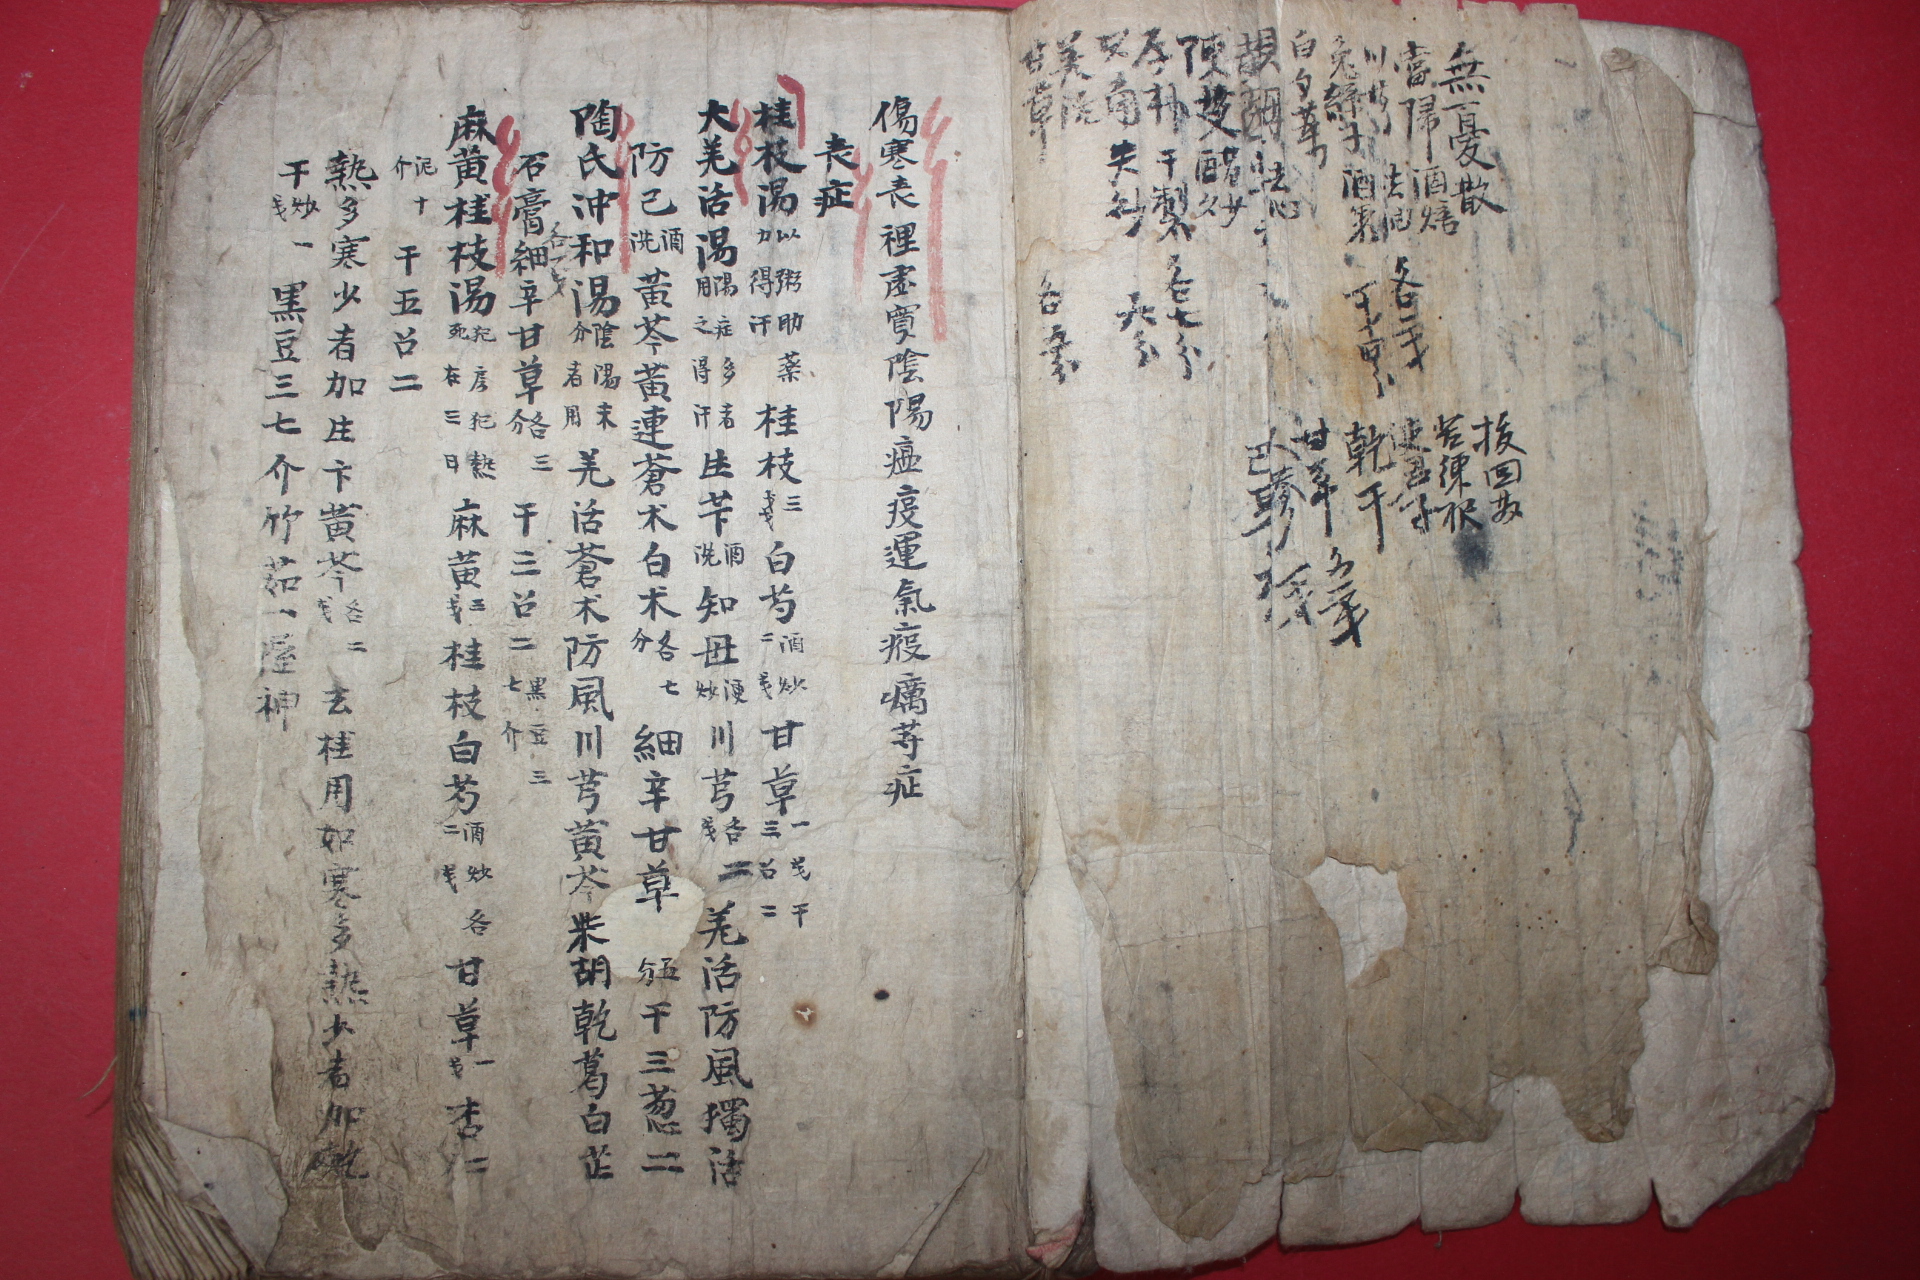 無憂散
當歸 酒焙
川芎 去油 各二戈
兔絲子 酒製
白勺藥
去心
便 醋炒
厚朴 干製 各七分
艾 失炒 六分
羌活
甘草 各五分
使君子
乾干
甘草 各一戈
傷寒表裡虛實陰陽瘟疫運氣疫癘等症
表症
桂枝湯 以粥助藥力得汗 桂枝 三戈 白芍 酒炒二戈 甘草 一戈干三召二
大羌活湯 陽症多者用之得汗 生芐 酒洗 知母 便炒 川芎 各二戈 羌活防風獨活
防己 酒洗 黃芩黃連蒼朮白朮 各七分 細辛甘草 五分 干三葱二
陶氏沖和湯 陰陽未分者用 羌活蒼朮防風川芎黃芩柴胡乾葛白芷
石膏細辛 各一戈 甘草 各三分 干三召二 黑豆三七介
麻黃桂枝湯 犯房犯熱死在三日 麻黃 三戈 桂枝白芍 酒炒各二戈 甘草 一戈 杏仁
泥十介 干五召二
熱多寒少者加生芐黃芩 各二戈 去桂用如寒多熱少者加乾
干 炒一戈 黑豆三七介竹茹一 神